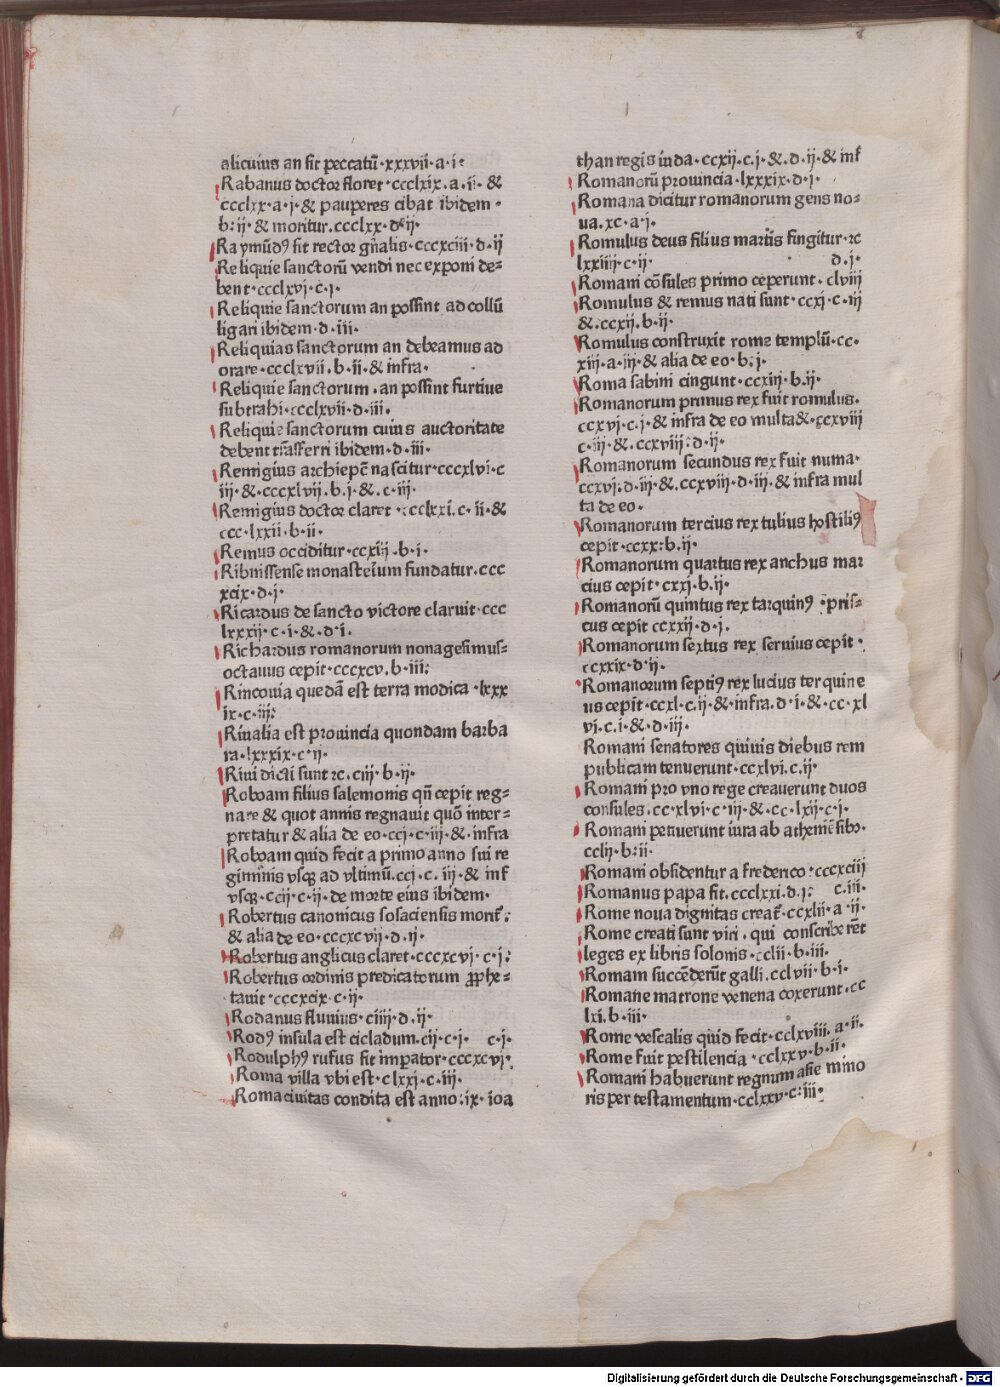 alicuius an sit peccatū·xxxvii·a·i·
Rabanus doctor floret·ccclxix.a.ii·&
ccclxx·a·j·& pauperes cibat ibidem·
b:ij·& moritur.ccclxx·d·ij·
Raymūdꝯ fit rector gn̄alis·cccxciii·d·ij
Reliquie sanctorū vendi nec exponi de⸗
bent·ccclxvj·c·j·
Reliquie sanctorum an possint ad collū
ligari ibidem·d·iii·
Reliquias sanctorum an debeamus ad
orare·ccclxvii.b·ii·& infra·
Reliquie sanctorum·an possint furtiue
subtrahi·ccclxvii·d·iii.
Reliquie sanctorum cuius auctoritate
debent trāsferri ibidem·d·iii·
Remigius archiepc̄ nascitur·cccxlvi·c
iij·&·cccxlvij.b.j·&.c·iii·
Remigius doctor claret·ccclxxi.c·ii·&
ccc·lxxii·b·ii·
Remus occiditur·ccxiij·b·j·
Ribnissense monasterium fundatur.ccc
xcix·d·j·
Ricardus de sancto victore claruit·ccc
lxxxij·c·i·&·d·i.
Richardus romanorum nonagesimus⸗
octauus cepit·cccxcv.b·iii:
Rinconia quedā est terra modica·lxxx
ix·c·iij:
Riualia est prouincia quondam barba
ra·lxxxix·c·ij·
Riui dicti sunt ⁊c.ciij·b·ij·
Roboam filius salemonis qn̄ cepit reg⸗
nare & quot annis regnauit quō inter⸗
pretatur & alia de eo·ccj·c·iij·&·infra
Roboam quid fecit a primo anno sui re
giminis vsqꝫ ad vltimū.ccj·c.iij·& inf
vsqꝫ·ccij·c·ij·de morte eius ibidem·
Robertus canonicus sosaciensis morit:
& alia de eo·cccxcvij·d·ij·
Robertus anglicus claret·cccxcvj·c·j:
Robertus ordinis predicatorum ꝓphe⸗
tauit·cccxcix·c·ij·
Rodanus fluuius·ciiij·d·ij·
Rodꝯ insula est cicladum.cij·c·j· c·j·
Rodulphꝯ rufus fit imperator·cccxcvj·
Roma villa vbi est·clxxj·c·iij·
Roma ciuitas condita est anno:ix·ioa
than regis iuda·ccxij·c.j·&·d·ij·& inf
Romanorū prouincia·lxxxix·d·j·
Romana dicitur romanorum gens no⸗
ua.xc·a·j.
Romulus deus filius martis fingitur·⁊c
lxxiiij·c·ij· d·j·
Romani cōsules primo ceperunt·clviii
Romulus & remus nati sunt·ccxj·c·iij
&.ccxij.b·ij·
Romulus construxit rome templū·cc·
xiij·a·iij·& alia de eo·b·j·
Roma sabini cingunt·ccxiij·b·ij·
Romanorum primus rex fuit romulus.
ccxvj·c·j·& infra de eo multa&·ccxviii
c·iij·&.ccxviij:d·ij·
Romanorum secundus rex fuit numa·
ccxvj:d·iij·&.ccxviij·d·iij·& infra mul
ta de eo·
Romanorum tercius rex tulius hostiliꝯ
cepit·ccxx:b.ij·
Romanorum quartus rex anchus mar
cius cepit·cxxj·b.ij·
Romanorū quintus rex tarquinꝯ·pris⸗
cus cepit ccxxij·d·j.
Romanorum sextus rex seruius cepit·
ccxxix·d·ij·
Romanorum septiꝯ rex lucius terquine
us cepit·ccxl·c.ij·&·infra.d·i·&·cc·xl
vi·c.i·&·d·iii·
Romani senatores quiuis diebus rem
publicam tenuerunt·ccxlvi.c.ij·
Romani pro vno rege creauerunt duos
consules.cc·xlvi·c·iij·&·cc·lxij·c·j·
Romani petiuerunt iura ab atheniēsibꝫ·
cclij·b:ij·
Romani obsidentur a frederico·cccxciij
Romanus papa fit.ccclxxi.d.j: c.iii·
Rome noua dignitas creat·ccxlii·a·ij·
Rome creati sunt viri·qui conscribe rēt
leges ex libris solonis·cclii·b·iii.
Romam succēderūt galli.cclvii·b·i·
Romane matrone venena coxerunt·cc
lxi.b·iii·
Rome vescalis quid fecit·cclxviii.a·ii.
Rome fuit pestilencia·cclxxv·b·ii·
Romani habuerunt regnum asie mino
ris per testamentum·cclxxv·c:iii·
Digitalisierung gefördert durch die Deutsche Forschungsgemeinschaft - DFG